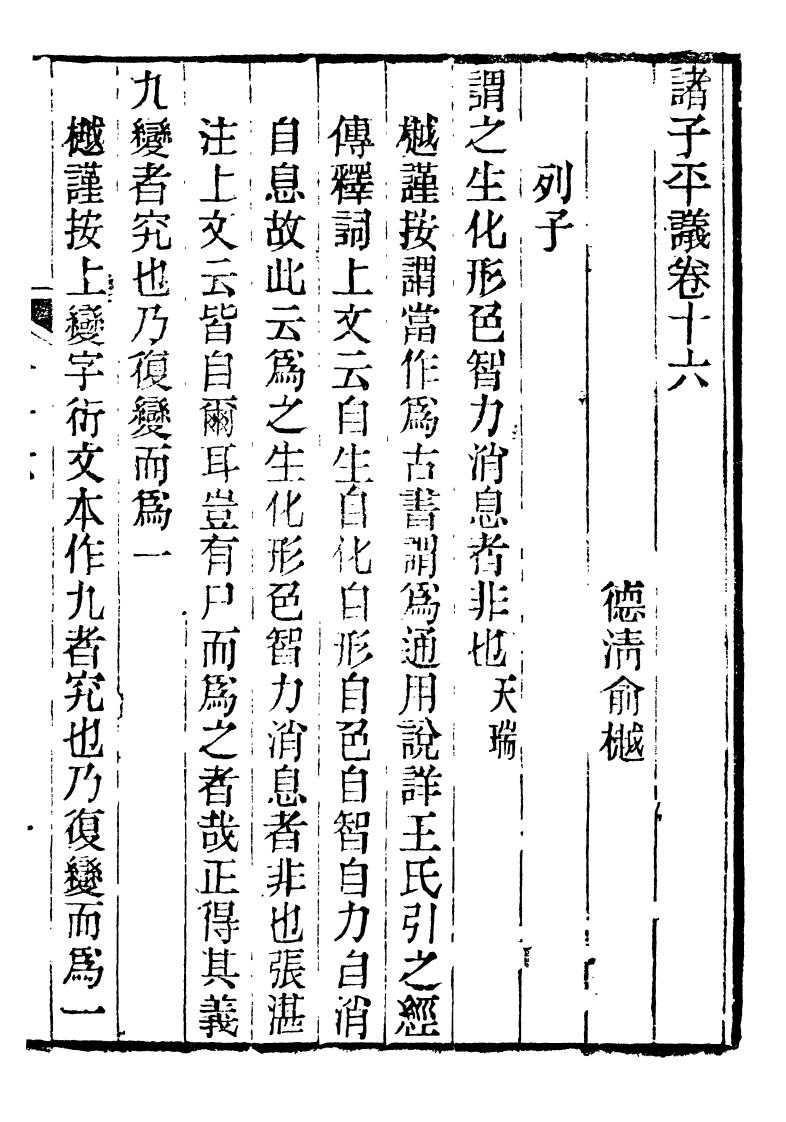 諸子平議卷十六
德淸俞樾
列子
謂之生化形色智力消息者非也天瑞
樾謹按謂當作爲古書謂爲通用說詳王氏引之經
傳釋詞上文云自生自化自形自色自智自力自消
自息故此云爲之生化形色智力消息者非也張湛
注上文云皆自爾耳豈有尸而爲之者哉正得其義
九變者究也乃復變而爲一
樾謹按上變字衍文本作九者究也乃復變而爲一